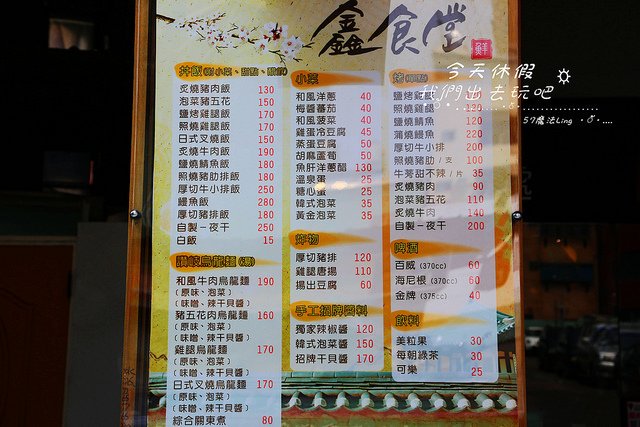 鱻食堂
鮮
今天休假
我們出去玩吧
57魔法Ling
丼飯(附小菜、甜點、飲料)
炙燒豬肉飯 130
泡菜豬五花 150
鹽烤雞腿飯 170
照燒雞腿飯 170
日式叉燒飯 150
炙燒牛肉飯 190
鹽燒鯖魚飯 180
照燒豬肋排飯 180
厚切牛小排飯 250
鰻魚飯 280
厚切豬排飯 180
自製一夜干 250
白飯 15
讚岐烏龍麵(湯)
和風牛肉烏龍麵 190
(原味、泡菜)
(味噌、辣干貝醬)
豬五花肉烏龍麵 160
(原味、泡菜)
(味噌、辣干貝醬)
雞腿烏龍麵 170
(原味、泡菜)
(味噌、辣干貝醬)
日式叉燒烏龍麵 170
(原味、泡菜)
(味噌、辣干貝醬)
綜合關東煮 80
小菜
和風洋蔥 40
梅醬蕃茄 40
和風菠菜 40
雞蛋冷豆腐 45
蒸蛋豆腐 50
胡麻蘆筍 50
魚肝洋蔥醋 130
溫泉蛋 25
糖心蛋 25
韓式泡菜 35
黃金泡菜 35
炸物
厚切豬排 120
雞腿唐揚 110
揚出豆腐 60
手工招牌醬料
獨家辣椒醬 120
韓式泡菜醬 150
招牌干貝醬 170
鹽烤雞腿
照燒雞腿 130
鹽燒鯖魚 120
蒲燒鰻魚 220
厚切牛小排 200
照燒豬肋/支 100
牛蒡甜不辣/片 35
炙燒豬肉 90
泡菜豬五花 110
炙燒牛肉 140
自製一夜干 200
啤酒
百威 (370cc) 60
海尼根 (370cc) 60
金牌 (375cc) 40
飲料
美粒果 30
每朝綠茶 30
可樂 25